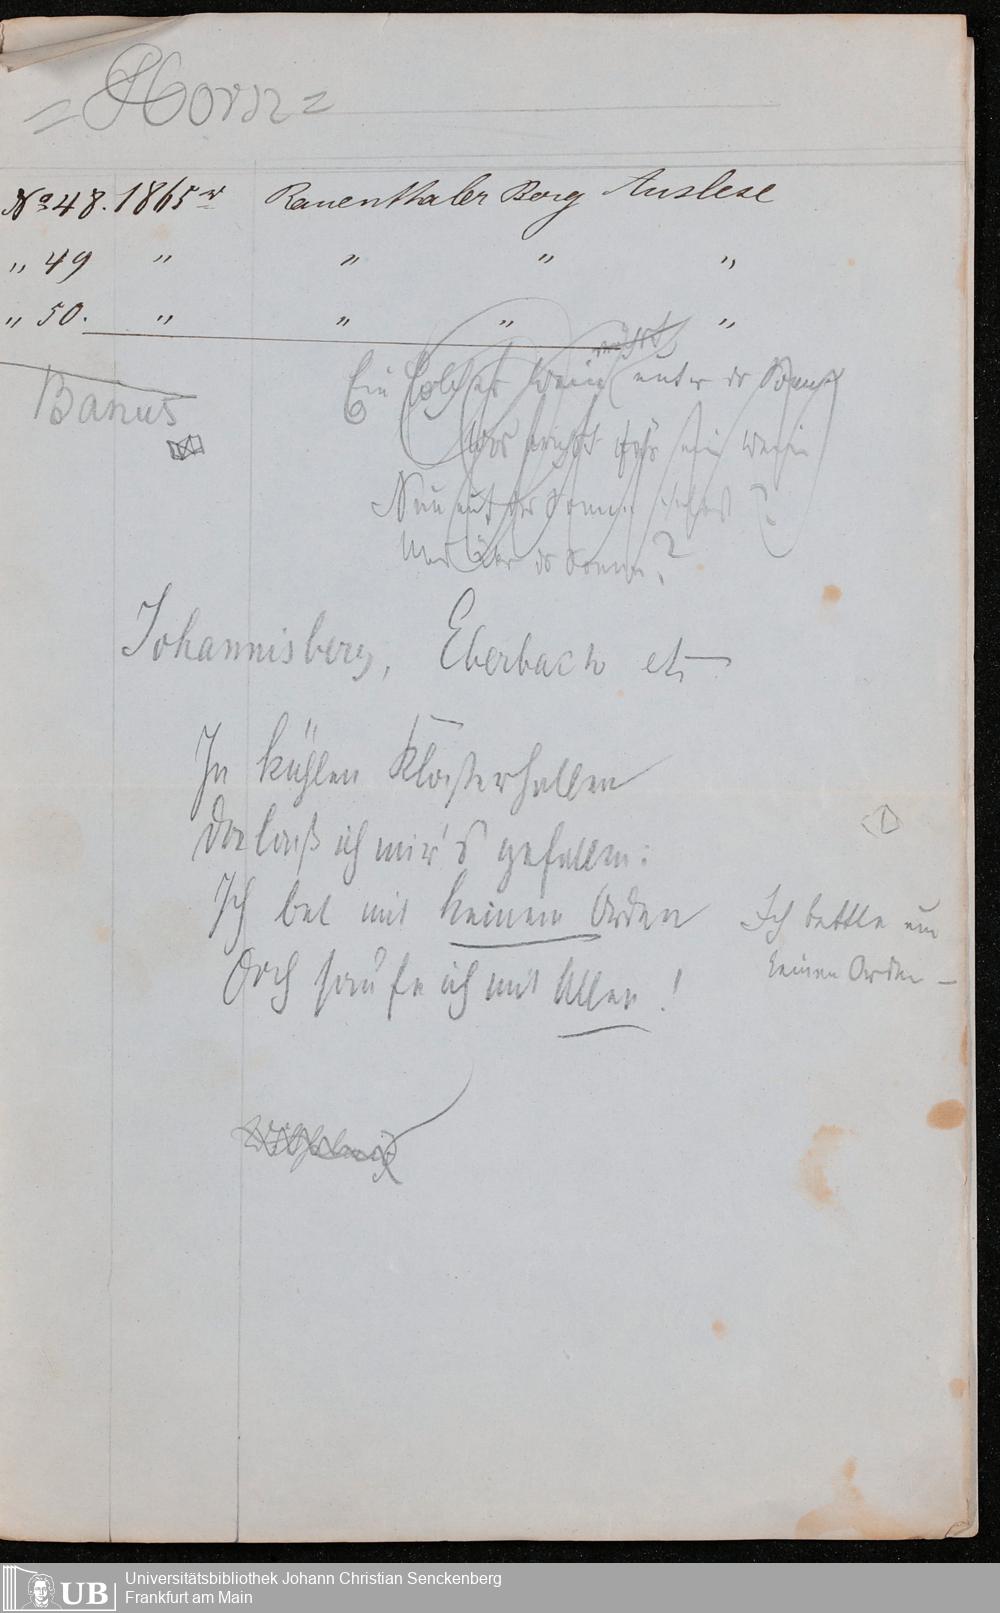 = Horn =
No 48. 1865r Rauenthaler Berg Auslese
„ 49 „ „ „ „
„ 50. „ „ „ „
wächst
Ein solcher Wein unter der Sonne
Was wächst für ein Wein
Neu auf der Sonne
Und über der Sonne?
Banus
Johannisberg, Eberbach etc
In kühlen Klosterhallen
Da laß ich mir's gefallen:
Ich bet mit keinem Orden
Doch saufe ich mit Allen!
Ich bettle um
keinen Orden –
1
UB
Universitätsbibliothek Johann Christian Senckenberg
Frankfurt am Main